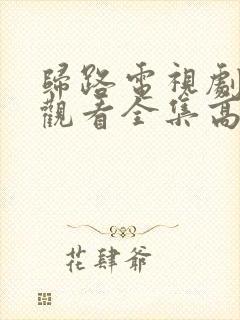 歸路電視劇
觀看全集高
花肆爺